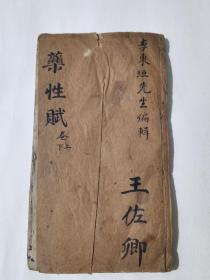 李東垣先生編輯
王佐卿
藥性賦
卷